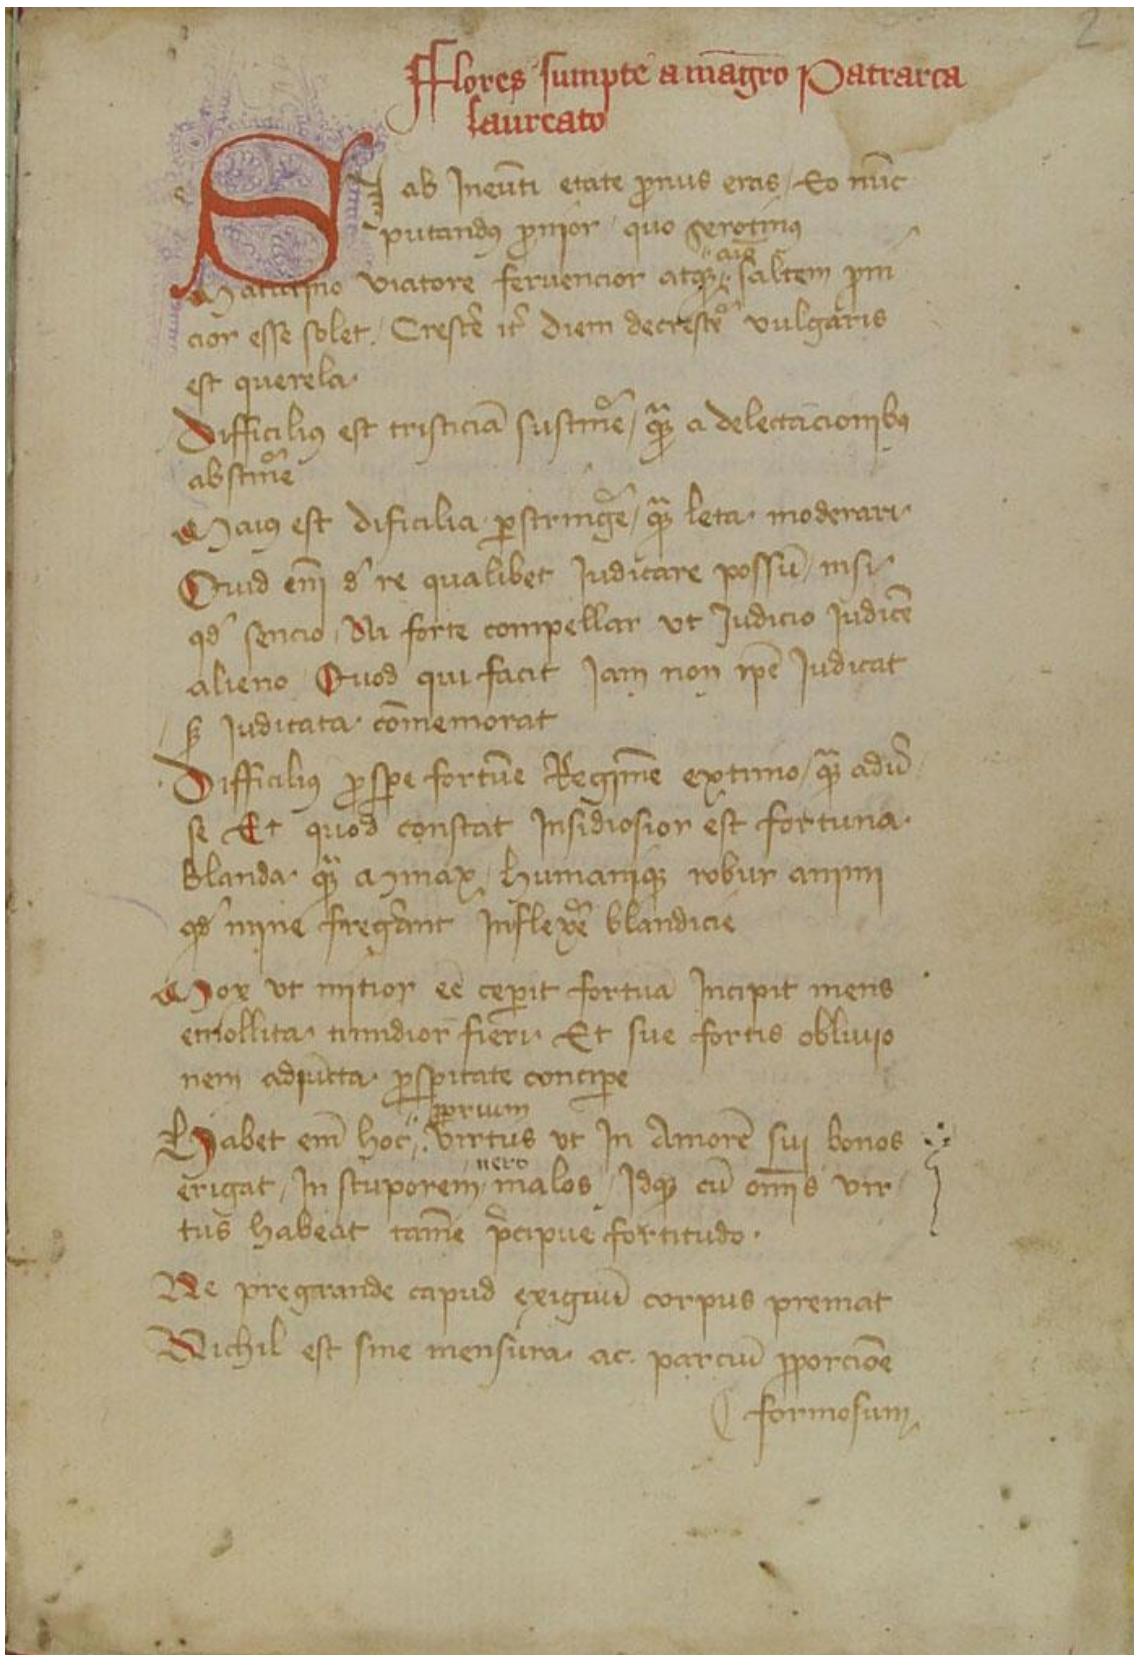 2
Flores sumpte a mag̅ro Patrarca
laureato
SI ab Ineu̅ti etate pronus eras / Eo nu̅c
putandus pronior / quo serotinus
ais
Matutino viatore feruencior atqꝫ saltem
cior esse solet / Cresce̅ it̉ diem decresce̅ vulgaris
est querela
Difficiliꝰ est tristicia̅ sustine̅ / qua̅ a delectacionibꝰ
abstine̅
Maiꝰ est dificilia perstringe̅ / qua̅ leta moderari
Quid eni̅ d̉ re qualibet Judicare possu̅ / nisi
qd̉ sencio / Ni forte compellar vt Judicio judice̅
alieno Quod qui facit Jam non ip̅e Judicat
sꝫ judicata co̅memorat
Difficiliꝰ prospe fortu̅e Regime̅ extimo / qua̅ adủ
se Et quod constat Insidiosior est fortuna
blanda qua̅ minax / humaniqꝫ robur animi
qd̉ mine fregera̅t Inflexe̅ blandicie
Mox vt mitior ee̅ ceperit fortu̅a Incipit mens
emollita timidior fieri Et sue fortis obliuio
nem adiu̅cta prosperitate concipe
proprium
Habet em̅ hoc virtus vt In Amore̅ sui bonos
vero
erigat / In stuporem malos / Idqꝫ cu̅ om̅is vir
tus habeat tame̅ p̉cipue fortitudo
Ne pregrande capud exiguu̅ corpus premat
Nichil est sine mensura ac parciu̅ proporcio̅e
formosum